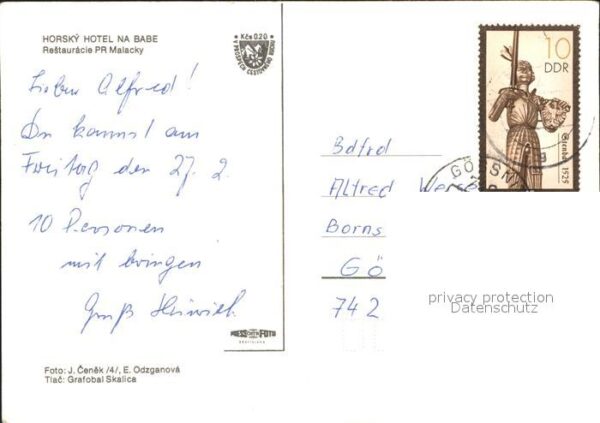 HORSKÝ HOTEL NA BABE
Reštaurácie PR Malacky
Kčs 0,20
V PROSPECH CESTOVNÉHO RUCHU
Lieber Alfred!
Du kannst am
Freitag den 27. 2.
10 Personen
mit bringen
Gruß Heinrich
PRESSFOTO
BRATISLAVA
Foto: J. Čeněk /4/, E. Odzganová
Tlač: Grafobal Skalica
10
DDR
1525
GÖSSN
Bdfrd
Alfred
Borns
GÖ
742
privacy protection
Datenschutz